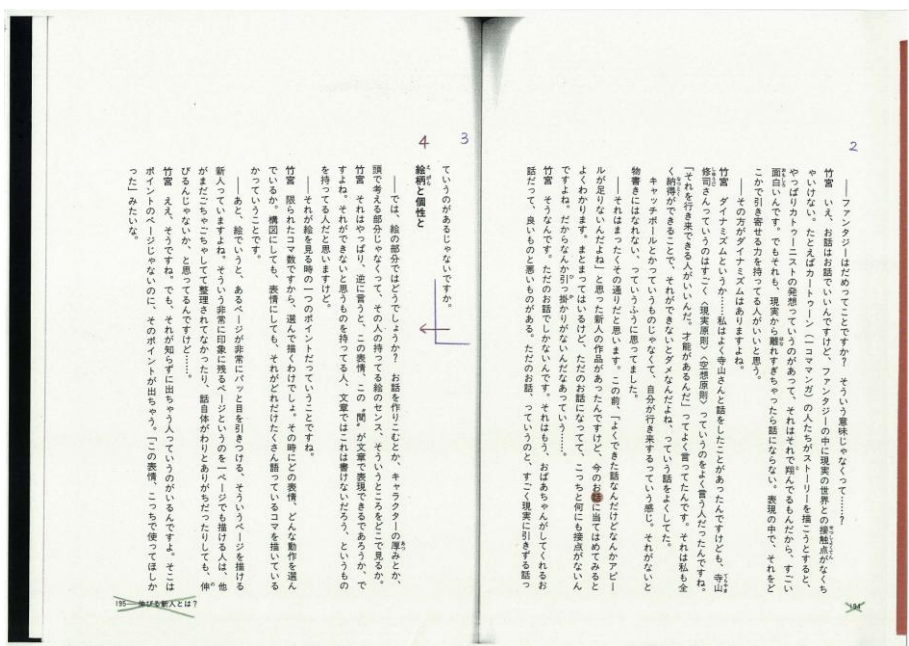 2
――ファンタジーはだめってことですか? そういう意味じゃなくって……?
竹宮 いえ、お話はお話でいいんですけど、ファンタジーの中に現実の世界との接触点がなくち
ゃいけない。たとえばカートゥーン(一コママンガ)の人たちがストーリーを描こうとすると、
やっぱりカトゥーニストの発想っていうのがあって、それはそれで翔んでるもんだから、すごい
面白いんです。でもそれも、現実から離れすぎちゃったら話にならない。表現の中で、それをど
こかで引き寄せる力を持ってる人がいいと思う。
――その方がダイナミズムはありますよね。
竹宮 ダイナミズムというか……私はよく寺山さんと話をしたことがあったんですけども、寺山
修司さんっていうのはすごく〈現実原則〉〈空想原則〉っていうのをよく言う人だったんですね。
「それを行き来できる人がいいんだ。才能があるんだ」ってよく言ってたんです。それは私も全
く納得ができることで、それができないとダメなんだよね、っていう話をよくしてた。
キャッチボールとかっていうものじゃなくて、自分が行き来するっていう感じ。それがないと
物書きにはなれない、っていうふうに思ってました。
――それはまったくその通りだと思います。この前、「よくできた話なんだけどなんかアピー
ルが足りないんだよね」と思った新人の作品があったんですけど、今のお話に当てはめてみると
よくわかります。まとまってはいるけど、ただのお話になってて、こっちと何にも接点がないん
ですよね。だからなんか引っ掛かりがないんだなあっていう……。
竹宮 そうなんです。ただのお話でしかないんです。それはもう、おばあちゃんがしてくれるお
話だって、良いものと悪いものがある、ただのお話、っていうのと、すごく現実に引きずる話っ
194
3
ていうのがあるじゃないですか。
4
絵柄と個性と
――では、絵の部分ではどうでしょうか? お話を作りこむとか、キャラクターの厚みとか、
頭で考える部分じゃなくって、その人の持ってる絵のセンス、そういうところをどこで見るか。
竹宮 それはやっぱり、逆に言うと、この表情、この〝間〟が文章で表現できるであろうか、で
すよね。それができないと思うものを持ってる人、文章ではこれは書けないだろう、というもの
を持ってる人だと思いますけど。
――それが絵を見る時の一つのポイントだっていうことですね。
竹宮 限られたコマ数ですから、選んで描くわけでしょ。その時にどの表情、どんな動作を選ん
でいるか。構図にしても、表情にしても、それがどれだけたくさん語っているコマを描いている
かっていうことです。
――あと、絵でいうと、あるページが非常にパッと目を引きつける、そういうページを描ける
新人っていますよね。そういう非常に印象に残るページというのを一ページでも描ける人は、他
がまだごちゃごちゃしてて整理されてなかったり、話自体がわりとありがちだったりしても、伸
びるんじゃないか、と思ってるんですけど……。
竹宮 ええ、そうですね。でも、それが知らずに出ちゃう人っていうのがいるんですよ。そこは
ポイントのページじゃないのに、そのポイントが出ちゃう。「この表情、こっちで使ってほしか
った」みたいな。
195――伸びる新人とは?